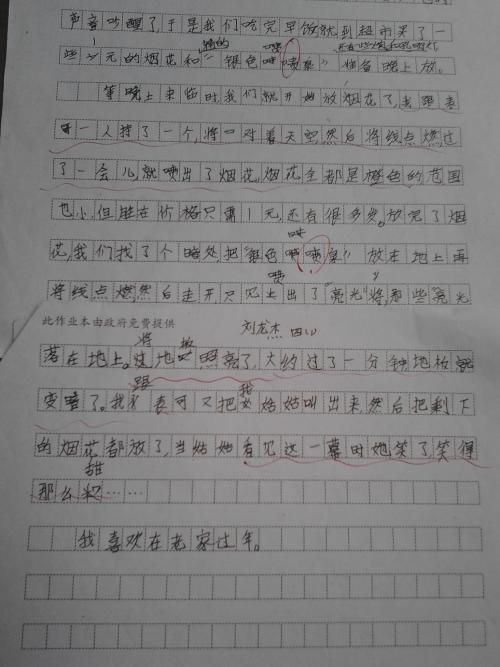 声音吵醒了,于是我们吃完早饭就到超市买了一
些一元的烟花和"银色喷泉"准备晚上放。
等晚上来临时,我们就开始放烟花了,我跟表
一人持了一个,将口对着天空然后将线点燃过
了一会儿,就喷出了烟花,烟花全都是橙色的范围
也小,但胜在价格只需1元,还有很多发。放完了烟
花,我们找了个暗处,把"银色喷泉"放在地上再
将线点燃然后走开只见上出了"亮光"将那些"亮光
此作业本由政府免费提供
刘龙杰 四(1)
落在地上。将地照亮了,大约过了一分钟地格
变暗了。我跟表可又把姑姑叫出来,然后把剩下
的烟花都放了,当姑姑看见这一幕时她笑了笑得
那么甜……
我喜欢在老家过年。